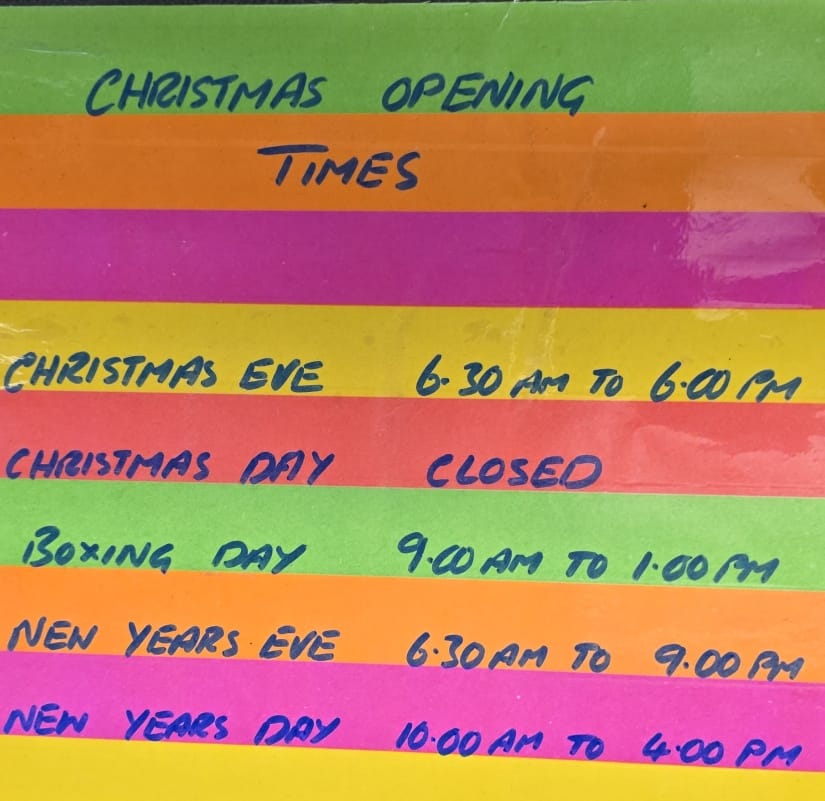 CHRISTMAS OPENING
TIMES
CHRISTMAS EVE 6.30 AM TO 6.00 PM
CHRISTMAS DAY CLOSED
BOXING DAY 9.00 AM TO 1.00 PM
NEW YEARS EVE 6.30 AM TO 9.00 PM
NEW YEARS DAY 10.00 AM TO 4.00 PM